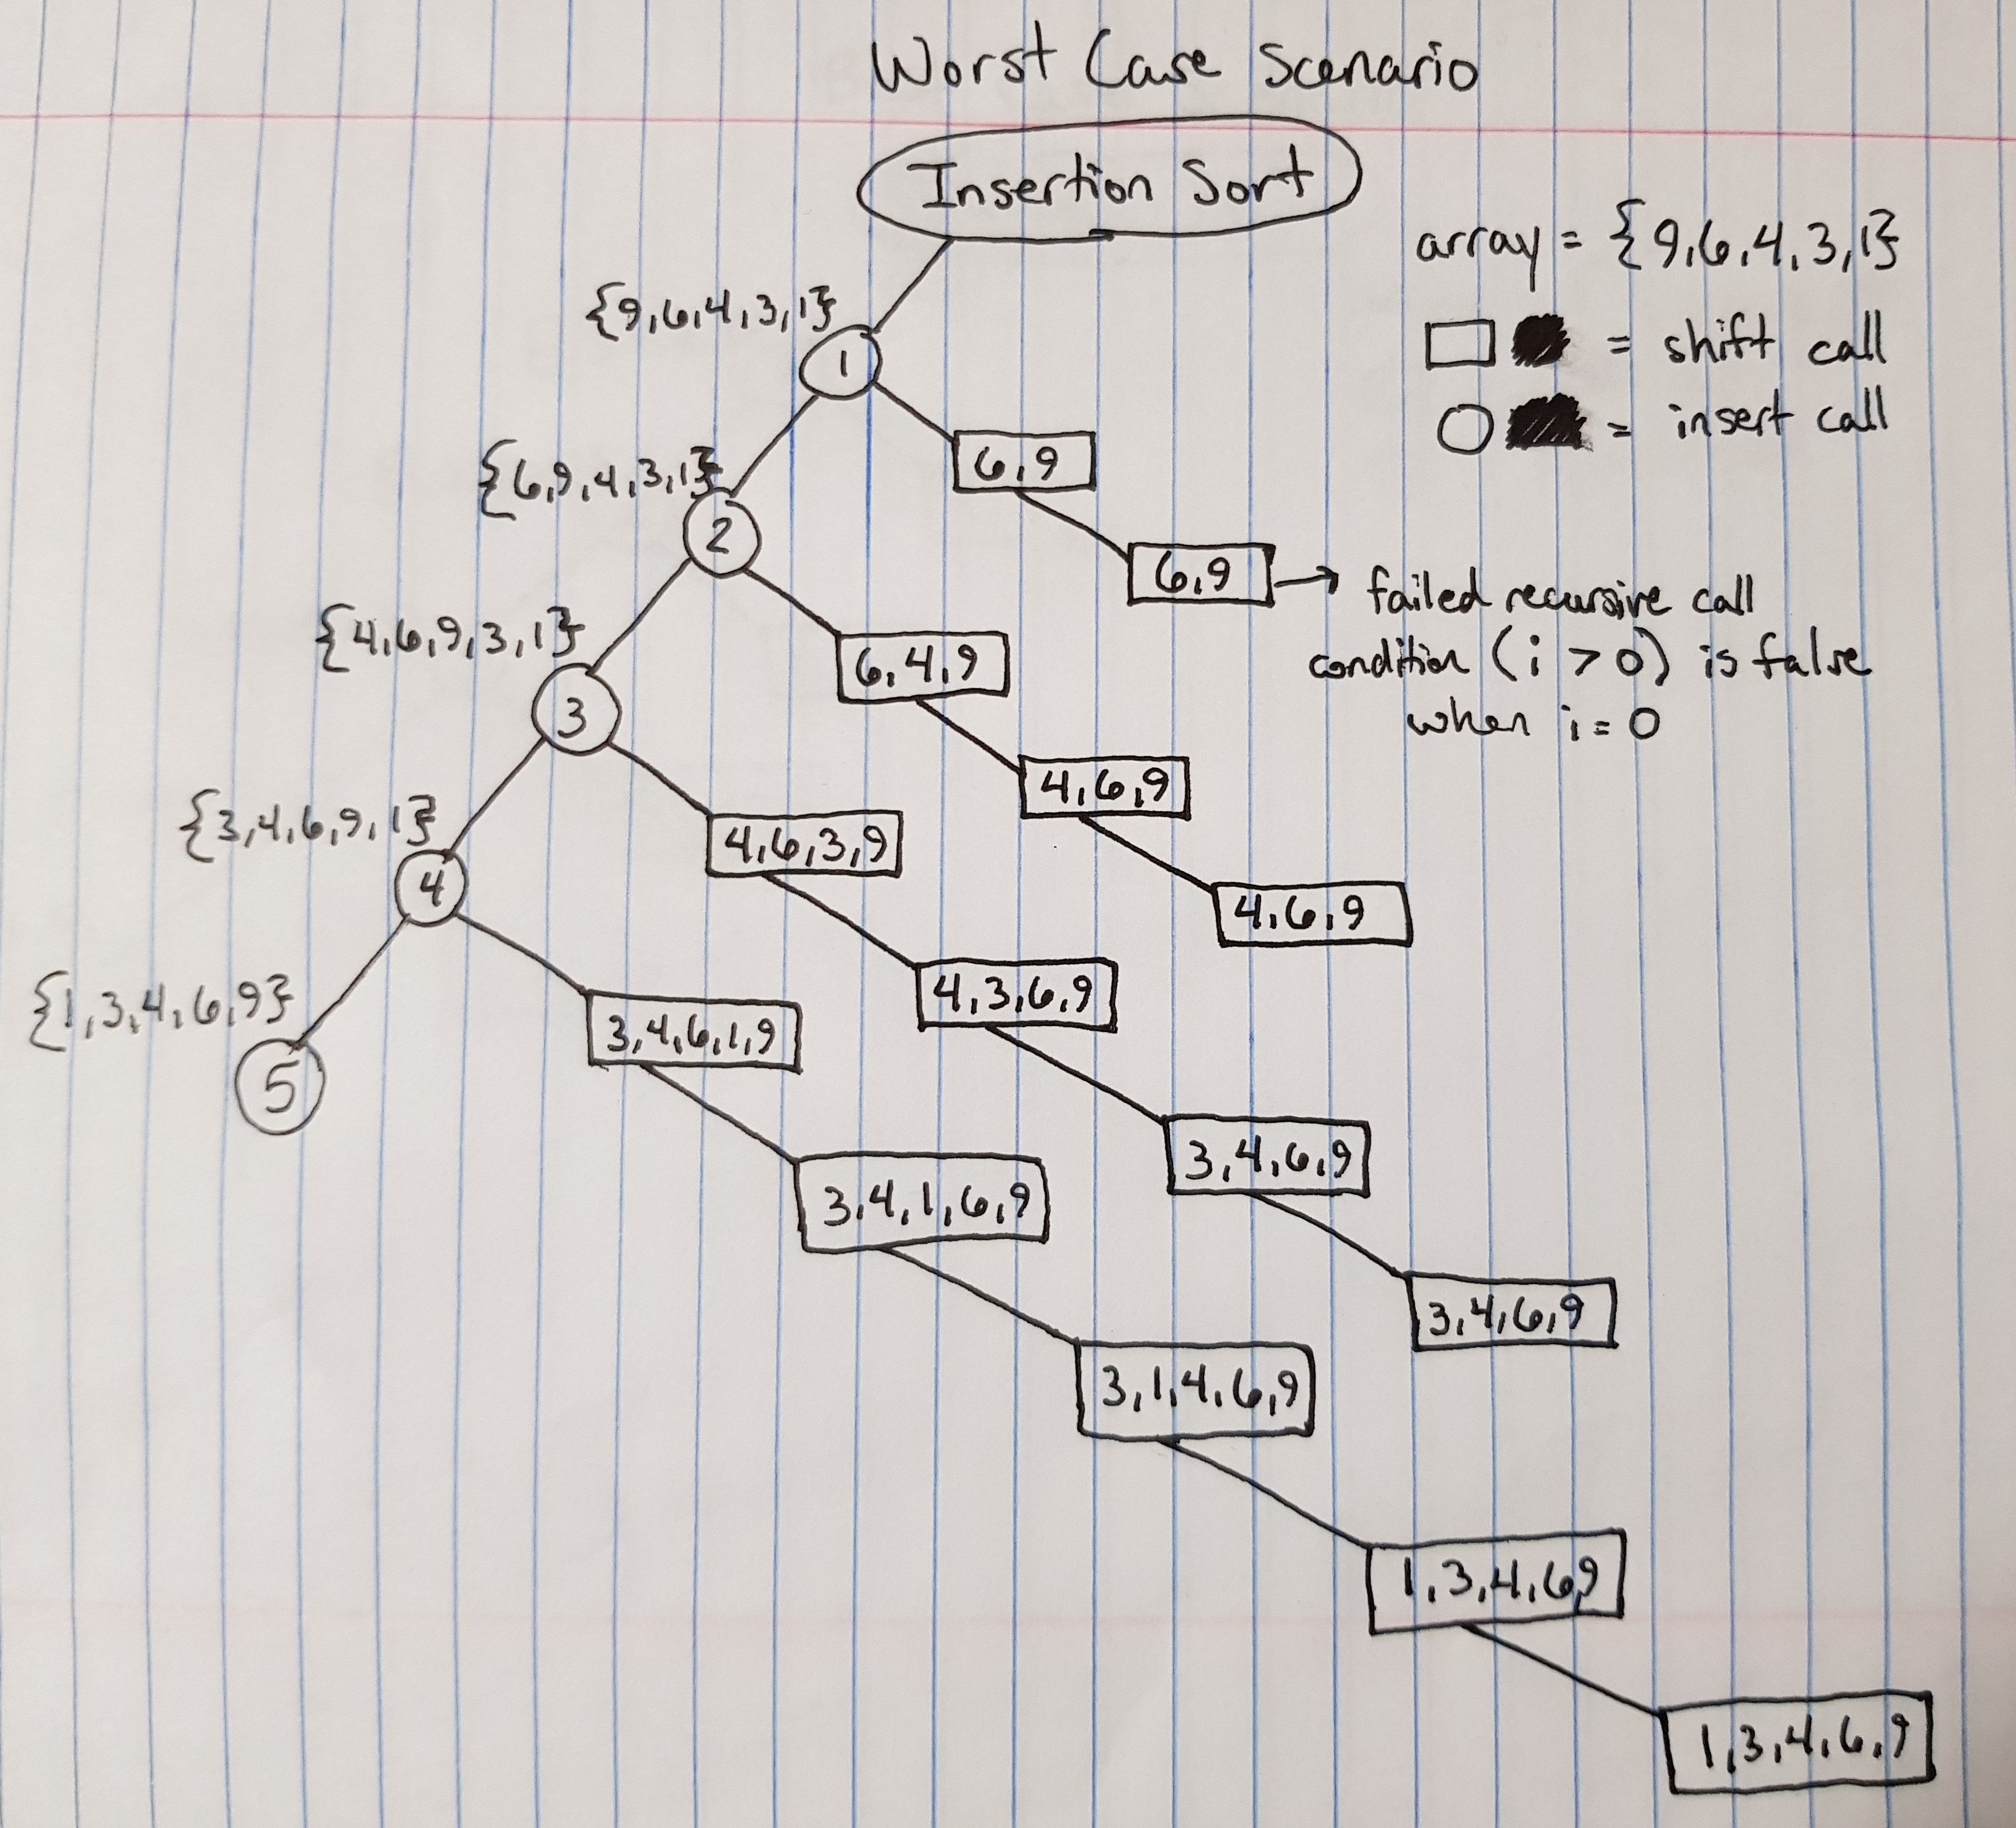 Worst Case Scenario
Insertion Sort
array = {9,6,4,3,1}
= shift call
= insert call
{9,6,4,3,1}
1
6,9
{6,9,4,3,1}
2
6,9 → failed recursive call
condition (i > 0) is false
when i = 0
{4,6,9,3,1}
3
6,4,9
4,6,9
{3,4,6,9,1}
4
4,6,3,9
4,6,9
{1,3,4,6,9}
5
4,3,6,9
3,4,6,1,9
3,4,6,9
3,4,1,6,9
3,4,6,9
3,1,4,6,9
1,3,4,6,9
1,3,4,6,9